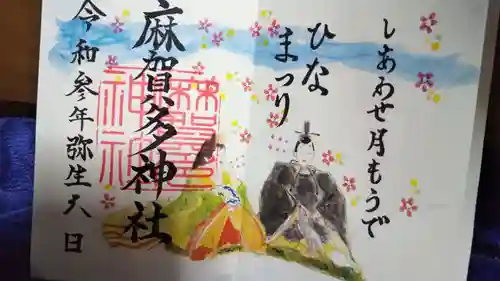 しあわせ月もうで
ひな
まつり
麻賀多神社
令和参年弥生六日